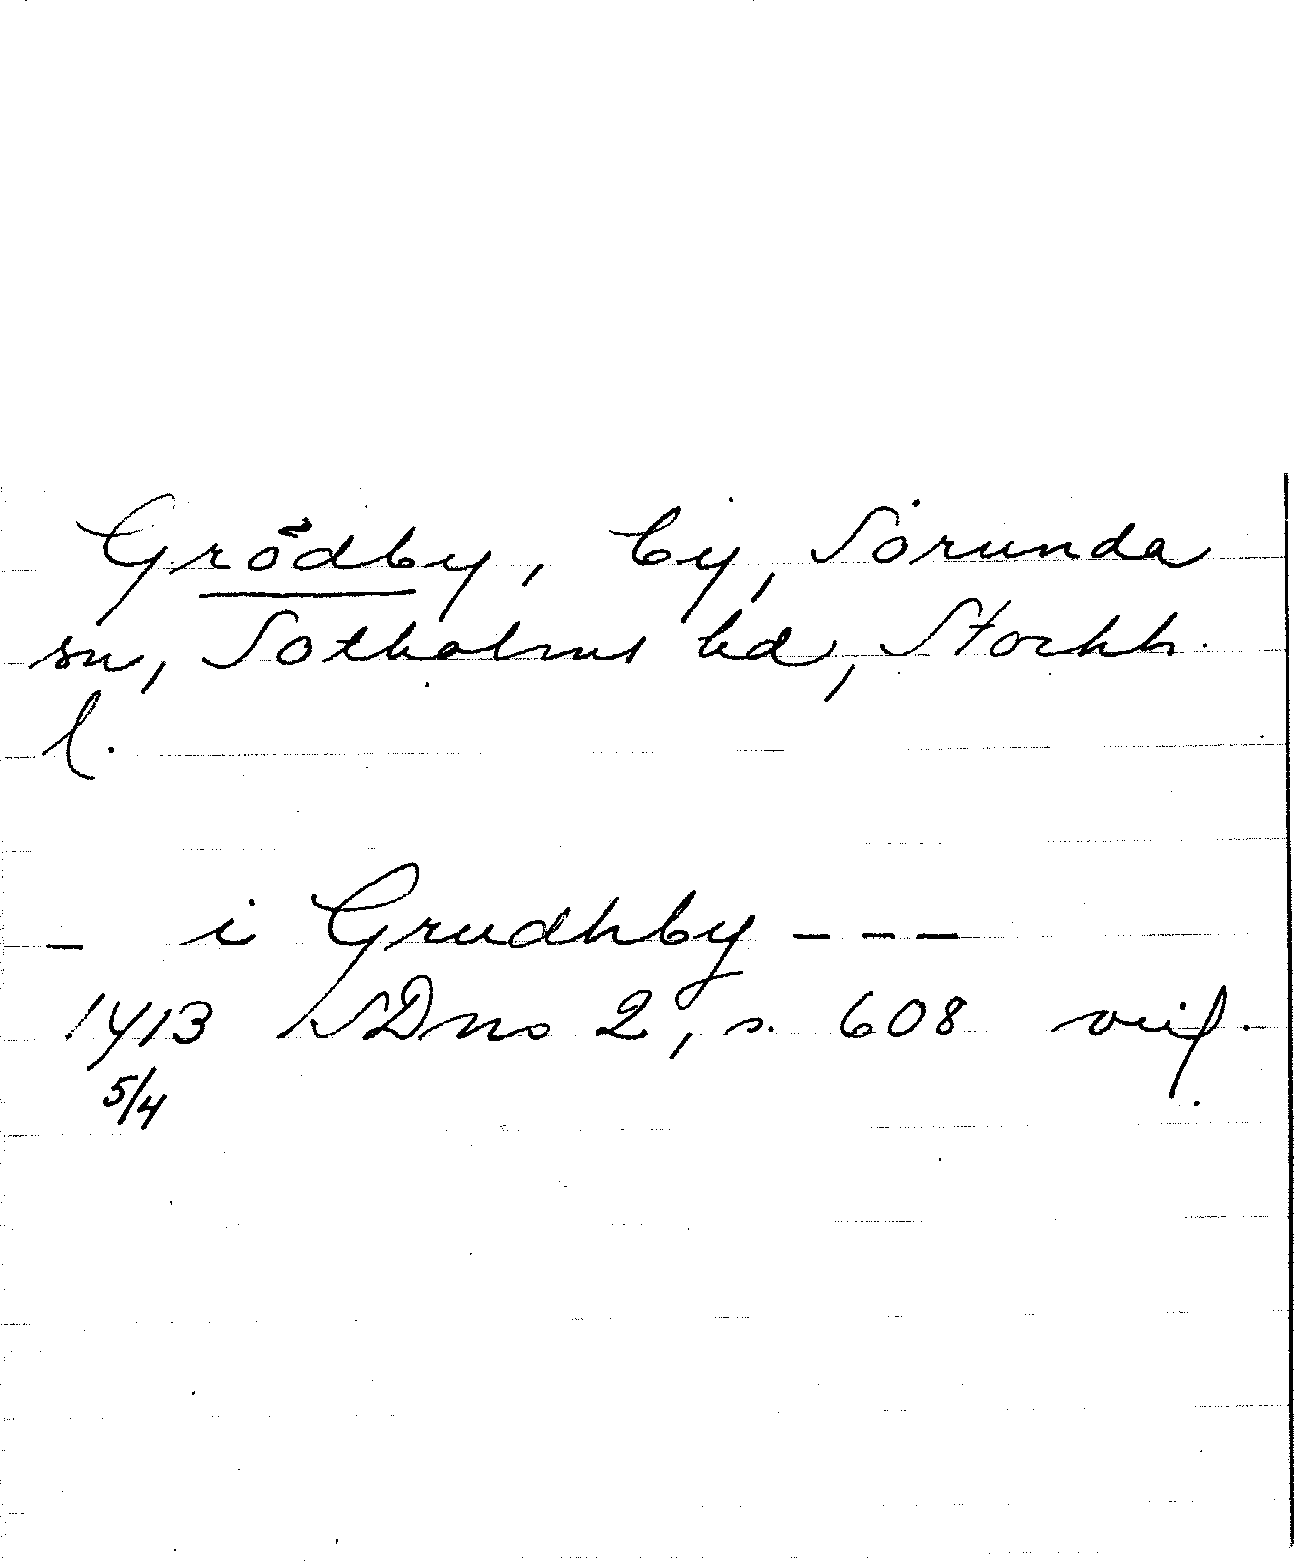 Grödby, by, Sorunda
sn, Sotholms hd, Stockh.
l.
- i Grudhby ---
1413 SDns 2, s. 608 vid.
5/4